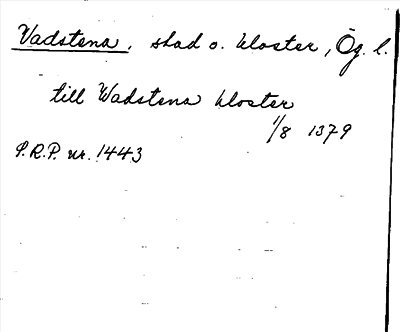 Vadstena, stad o. kloster, Ög. l.
till Wadstena kloster
1/8 1379
S.R.P. nr. 1443